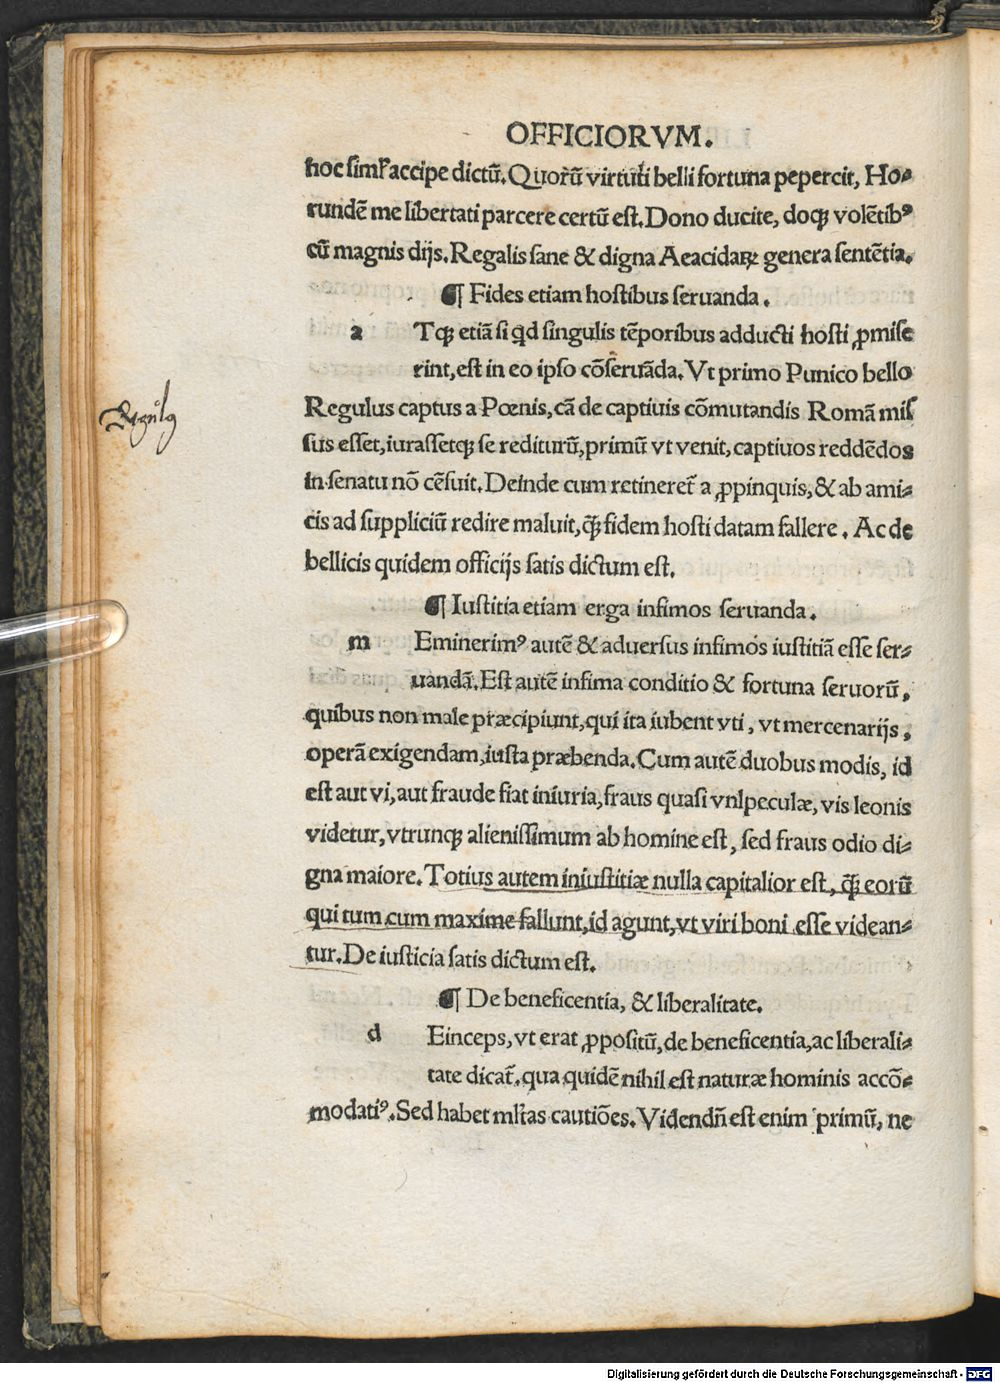 OFFICIORVM.
hoc simľ accipe dictū. Quoꝝ̄ virtuti belli fortuna pepercit, Ho⸗
rundē me libertati parcere certū est. Dono ducite, doqꝫ volētibꝰ
cū magnis dijs. Regalis sane & digna Aeacidaꝝ genera sentētia.
¶ Fides etiam hostibus seruanda.
a Tqꝫ etiā si qd singulis tēporibus adducti hosti ꝓmise
rint, est in eo ipso cōseruāda. Vt primo Punico bello
Regulus captus a Pœnis, cā de captiuis cōmutandis Romā mis
sus esset, iurassetqꝫ se rediturū, primū vt venit, captiuos reddēdos
in senatu nō cēsuit. Deinde cum retineret̄ a ꝓpinquis, & ab ami⸗
cis ad suppliciū redire maluit, qꝫ̄ fidem hosti datam fallere. Ac de
bellicis quidem officijs satis dictum est.
Regulꝰ
¶ Iustitia etiam erga infimos seruanda.
m Eminerimꝰ autē & aduersus infimos iustitiā esse ser⸗
uandā. Est autē infima conditio & fortuna seruorū,
quibus non male præcipiunt, qui ita iubent vti, vt mercenarijs,
operā exigendam, iusta præbenda. Cum autē duobus modis, id
est aut vi, aut fraude fiat iniuria, fraus quasi vnlpeculæ, vis leonis
videtur, vtrunqꝫ alienissimum ab homine est, sed fraus odio di⸗
gna maiore. Totius autem iniustitiæ nulla capitalior est, qꝫ̄ eorū
qui tum cum maxime fallunt, id agunt, vt viri boni esse videan⸗
tur. De iusticia satis dictum est.
¶ De beneficentia, & liberalitate.
d Einceps, vt erat ꝓpositū, de beneficentia, ac liberali⸗
tate dicat̄. qua quidē nihil est naturæ hominis accō⸗
modatiꝰ. Sed habet mľtas cautiōes. Videndn̄ est enim primū, ne
Digitalisierung gefördert durch die Deutsche Forschungsgemeinschaft - DFG